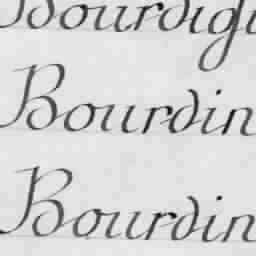 Bourdigi
Bourdin
Bourdin